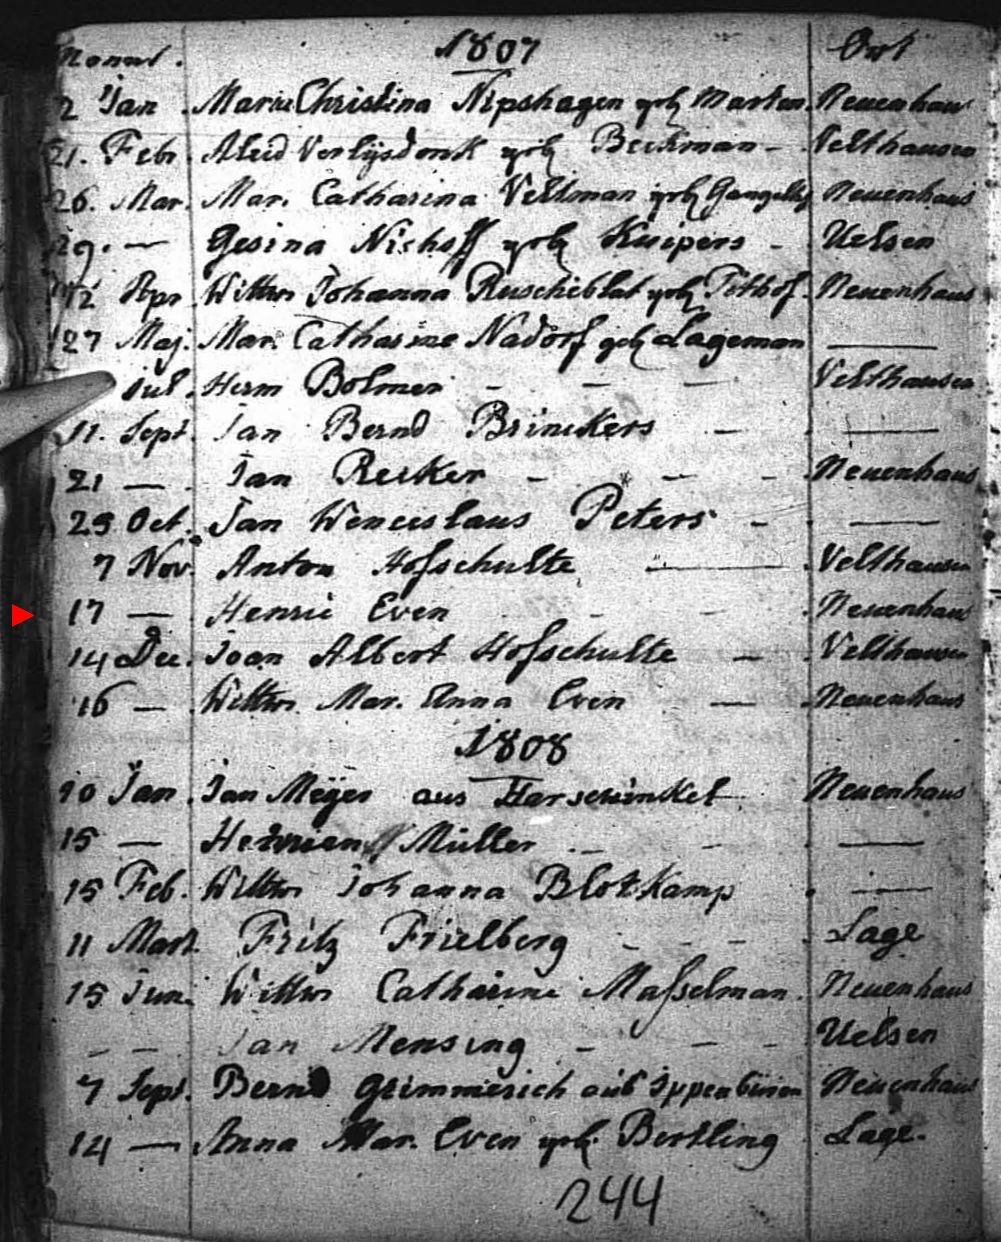 Monat. 1807 Ort
2 Jan. Maria Christina Nipshagen geb Marten Neuenhaus
21. Febr. Aleid Verlijsdonk geb Beckman - Velthausen
26. Mar. Mar. Catharina Veltman geb Neuenhaus
29. — Gesina Niehoff geb Kuipers - Uelsen
12 Apr Wittwe Johanna Ruscheblat geb Pithof. Neuenhaus
27 Maj. Mar. Catharine Nadorf geb Lageman —
Jul. Herm Bolmer - - - Velthausen
11. Sept. Jan Bernd Brinckers - —
21 — Jan Recker - - - Neuenhaus
29 Oct. Jan Wenceslaus Peters - —
7 Nov. Anton Hofschulte — Velthausen
17 — Henric Even - - - Neuenhaus
14 Dec. Joan Albert Hofschulte - Velthausen
16 — Wittwe Mar. Anna Even — Neuenhaus
1808
10 Jan. Jan Meÿer aus Harsewinkel Neuenhaus
15 — Müller - - —
15 Feb. Wittwe Johanna Blotkamp . —
11 Mart. Fritz Frielberg - - - Lage
15 Jun. Wittwe Catharine Maſselman. Neuenhaus
- - Jan Mensing - - - Uelsen
7 Sept. Bernd Grimmerich aus Ippenbüren Neuenhaus
14 — Anna Mar. Even geb. Bertling Lage.
244